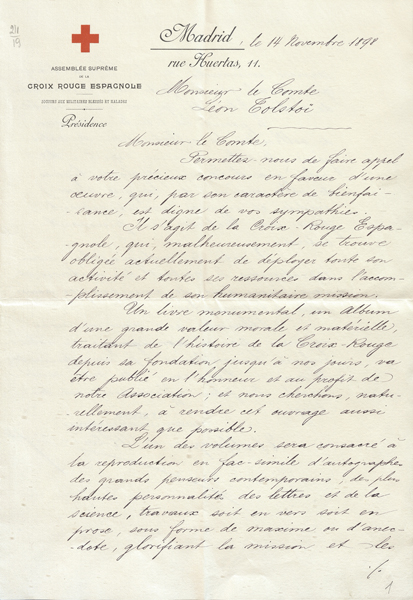 Madrid, le 14 Novembre 1898
rue Huertas, 11.
ASSEMBLÉE SUPRÊME
DE LA
CROIX ROUGE ESPAGNOLE
SECOURS AUX MILITAIRES BLESSÉS ET MALADES
Présidence
Monsieur le Comte
Léon Tolstoï
Monsieur le Comte.
Permettez-nous de faire appel
à votre précieux concours en faveur d'une
œuvre, qui, par son caractère de bienfai-
-sance, est digne de vos sympathies.
Il s'agit de la Croix-Rouge Espa-
-gnole, qui, malheureusement, se trouve
obligée actuellement de déployer toute son
activité et toutes ses ressources dans l'accom-
-plissement de son humanitaire mission.
Un livre monumental, un Album
d'une grande valeur morale et matérielle,
traitant de l'histoire de la Croix-Rouge
depuis sa fondation jusqu'à nos jours, va
être publié en l'honneur et au profit de
notre Association; et nous cherchons, natu-
-rellement, à rendre cet ouvrage aussi
intéressant que possible.
L'un des volumes sera consacré à
la reproduction en fac-simile d'autographes
des grands penseurs contemporains, des plus
hautes personnalités des lettres et de la
science, travaux soit en vers soit en
prose, sous forme de maxime ou d'anec-
-dote, glorifiant la mission et les
./.
1